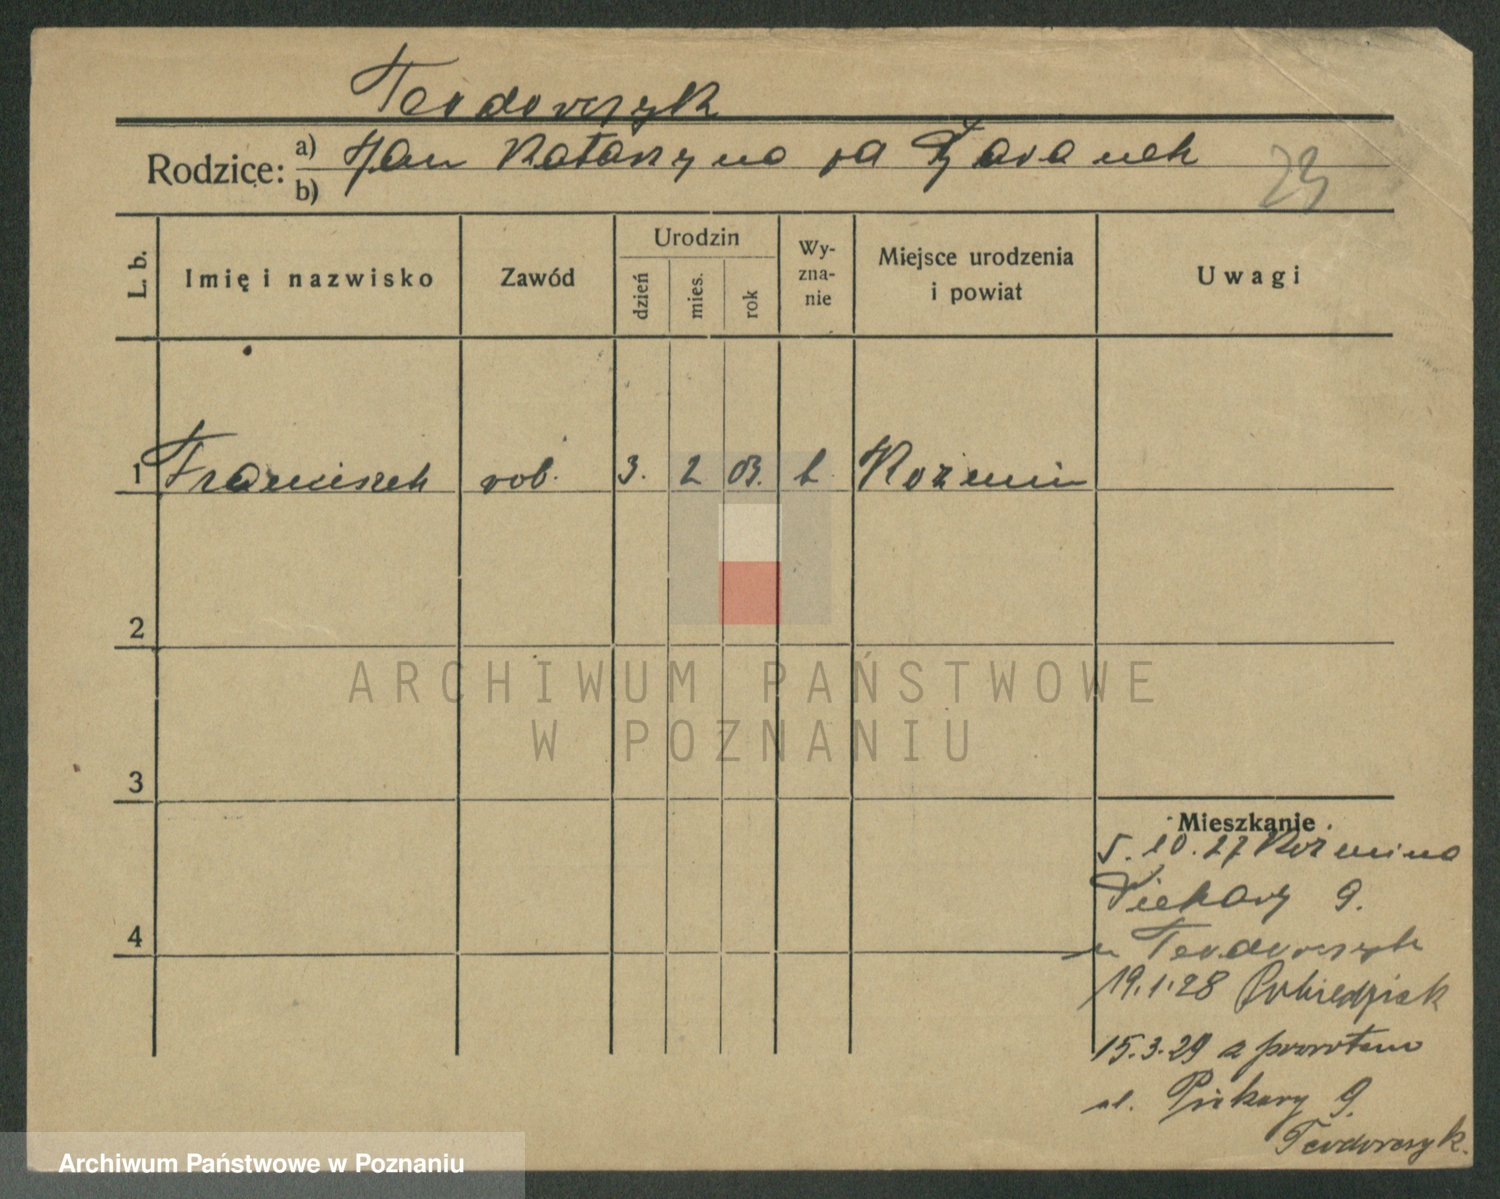 Teodorczyk
Rodzice: a) Jan Katarzyna
b)
23
L. b.
Imię i nazwisko
Zawód
Urodzin
dzień
mies.
rok
Wy-
zna-
nie
Miejsce urodzenia
i powiat
Uwagi
1 Franciszek rob. 3. 2 03. k Koźmin
2
3
4
ARCHIWUM PAŃSTWOWE
W POZNANIU
Mieszkanie
5.10.27 Koźmina
Piekary 9.
u Teodorczyk
19.1.28 Pobiedzisk
15.3.29 z powrotem
ul. Piekary 9.
Teodorczyk.
Archiwum Państwowe w Poznaniu